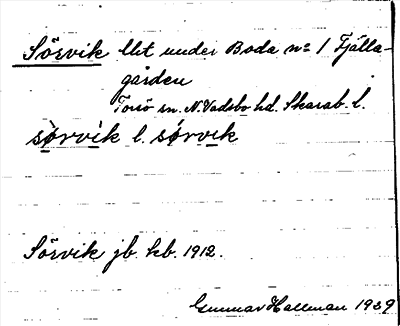 Sörvik llt under Boda no 1 Fjälla-
gården
Torsö sn. N. Vadsbo hd. Skarab. l.
sørvìk l. sǿrvik
Sörvik jb. kb. 1912.
Gunnar Hallman 1939